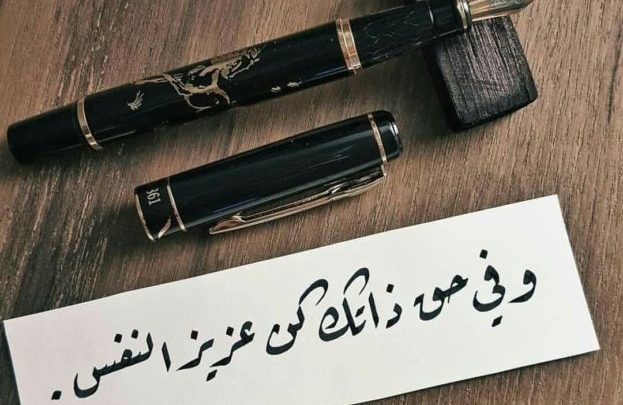 391
وفي حق ذاتك كن عزيز النفس .